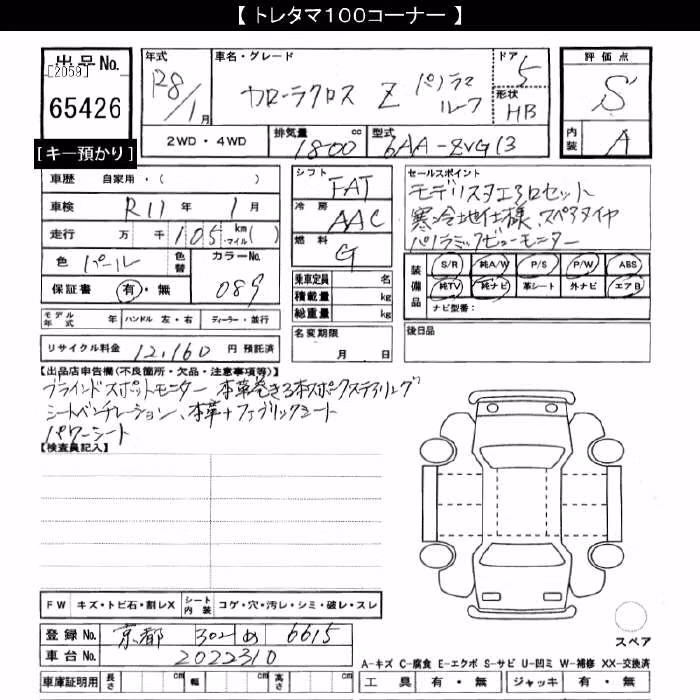 【 トレタマ100コーナー 】
出品No.
[2059]
65426
[キー預かり]
年式
R8/1月
車名・グレード
カローラクロス Z パノラマルーフ
ドア 5
形状 HB
評価点
S
内装 A
2WD・4WD
排気量 1800 cc
型式 6AA-ZVG13
車歴 自家用・( )
車検 R11年 1月
走行 万 千 105 km マイル( )
色 パール
色替
カラーNo. 089
保証書 有・無
モデル年式 年 ハンドル 左・右 ディーラー・並行
リサイクル料金 12,160 円 預託済
シフト FAT
冷房 AAC
燃料 G
乗車定員 名
積載量 kg
総重量 kg
名変期限
月 日
セールスポイント
モデリスタエアロセット
寒冷地仕様、スペアタイヤ
パノラミックビューモニター
装備品
S/R 純A/W P/S P/W ABS
純TV 純ナビ 革シート 外ナビ エアB
ナビ型番:
後日品
【出品店申告欄(不良箇所・欠品・注意事項等)】
ブラインドスポットモニター 本革巻き3本スポークステアリング
シートベンチレーション、本革+ファブリックシート
パワーシート
【検査員記入】
FW キズ・トビ石・割レX シート内装 コゲ・穴・汚レ・シミ・破レ・スレ
登録No. 京都 302 め 6615
車台No. 2022310
車庫証明用 長さ cm 幅 cm 高さ cm
スペア
A-キズ C-腐食 E-エクボ S-サビ U-凹ミ W-補修 XX-交換済
工具 有・無 ジャッキ 有・無